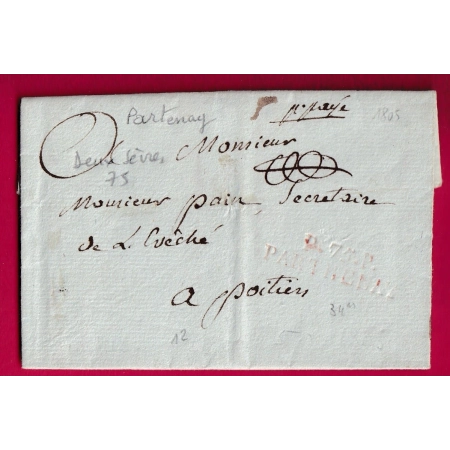 Partenay
p. payé
1805
Monsieur
Deux Sèvres
75
Monsieur pain Secretaire
de L'Evêché
P.75.P.
PARTHENAY
a poitiers
12